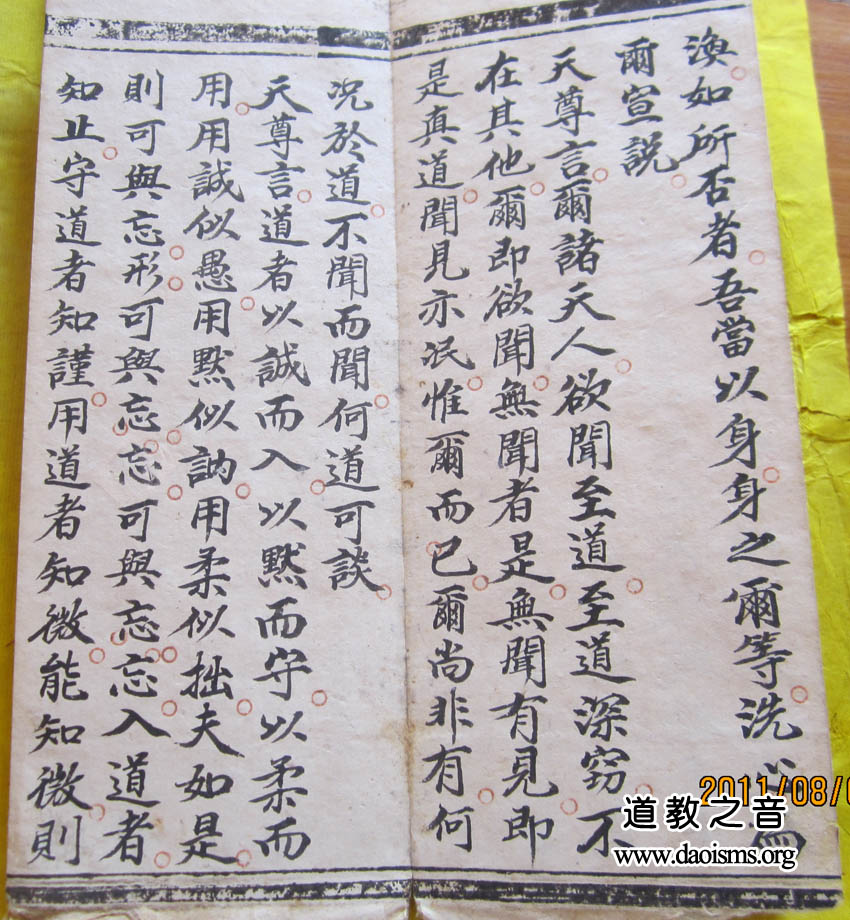 渙如所否者吾當以身身之爾等洗心為
爾宣說
天尊言爾諸天人欲聞至道至道深窈不
在其他爾即欲聞無聞者是無聞有見即
是真道聞見亦泯惟爾而已爾尚非有何
況於道不聞而聞何道可談
天尊言道者以誠而入以默而守以柔而
用用誠似愚用默似訥用柔似拙夫如是
則可與忘形可與忘忘可與忘忘入道者
知止守道者知謹用道者知微能知微則
2011/08/0
道教之音
www.daoisms.org